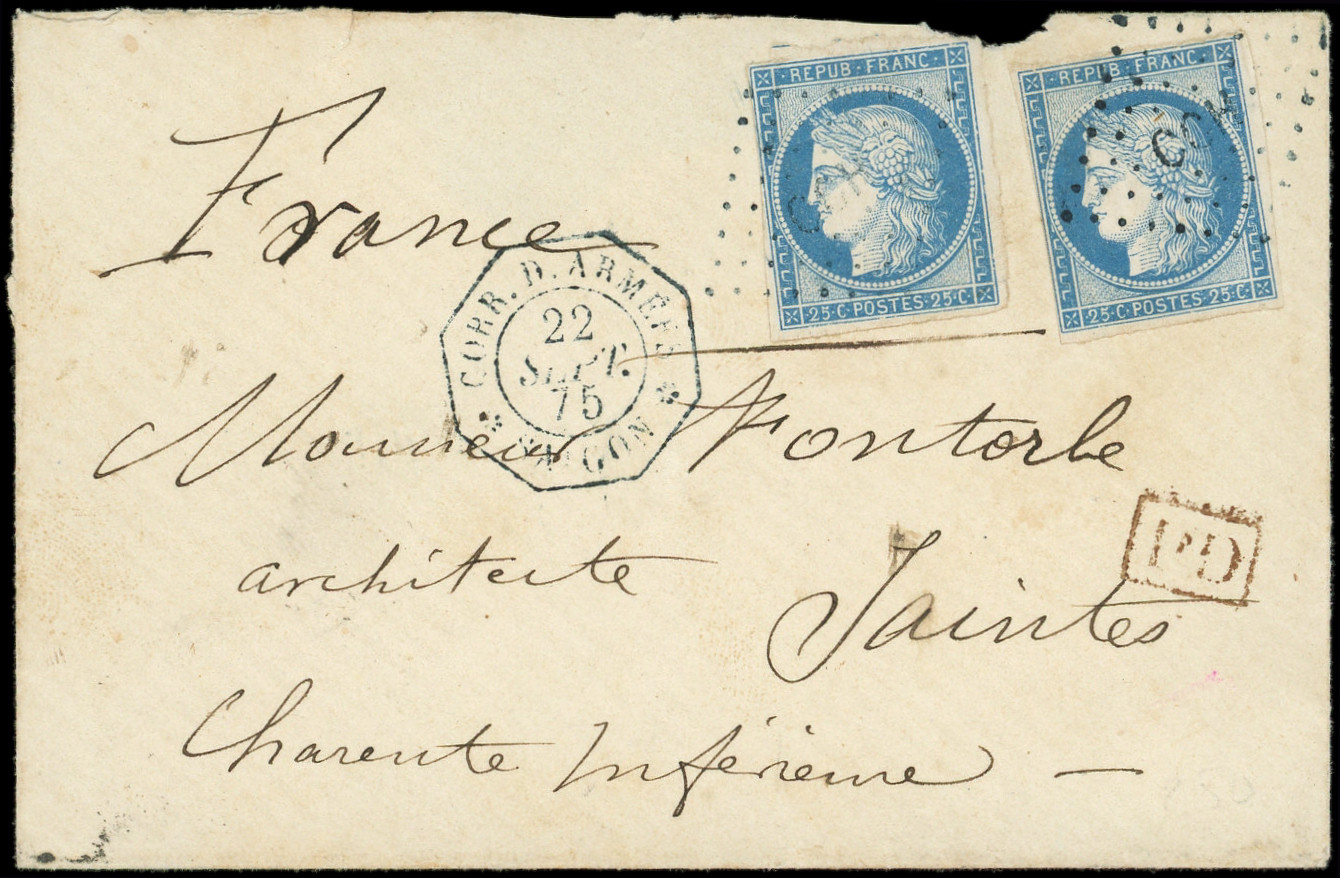 REPUB · FRANC ·
25 · C POSTES 25 · C
REPUB · FRANC ·
25 · C POSTES 25 · C
CCH
France
CORR. D. ARMÉES
22
SEPT.
75
SAIGON
Monsieur Fontorbe
PD
architecte
Saintes
Charente Inférieure —